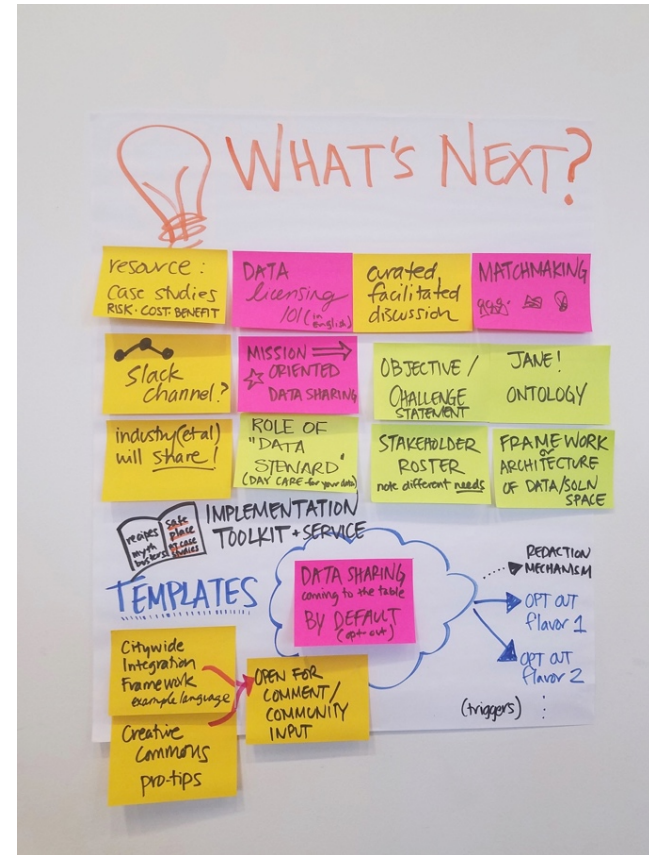 WHAT'S NEXT?
resource:
case studies
RISK·COST·BENEFIT
DATA
licensing
101 (in
English)
curated,
facilitated
discussion
MATCHMAKING
Slack
Channel?
MISSION
ORIENTED
DATA SHARING
OBJECTIVE /
CHALLENGE
STATEMENT
JANE!
ONTOLOGY
industry (et al)
will share!
ROLE OF
"DATA
STEWARD"
(DAY CARE for your data)
STAKEHOLDER
ROSTER
note different needs
FRAMEWORK
or
ARCHITECTURE
OF DATA/SOLN
SPACE
recipes
myth
busters!
safe
place
case
studies
IMPLEMENTATION
TOOLKIT + SERVICE
TEMPLATES
DATA SHARING
coming to the table
BY DEFAULT
(opt out)
REDACTION
MECHANISM
OPT OUT
flavor 1
OPT OUT
flavor 2
(triggers)
Citywide
Integration
Framework
example/language
OPEN FOR
COMMENT/
COMMUNITY
INPUT
Creative
Commons
pro-tips